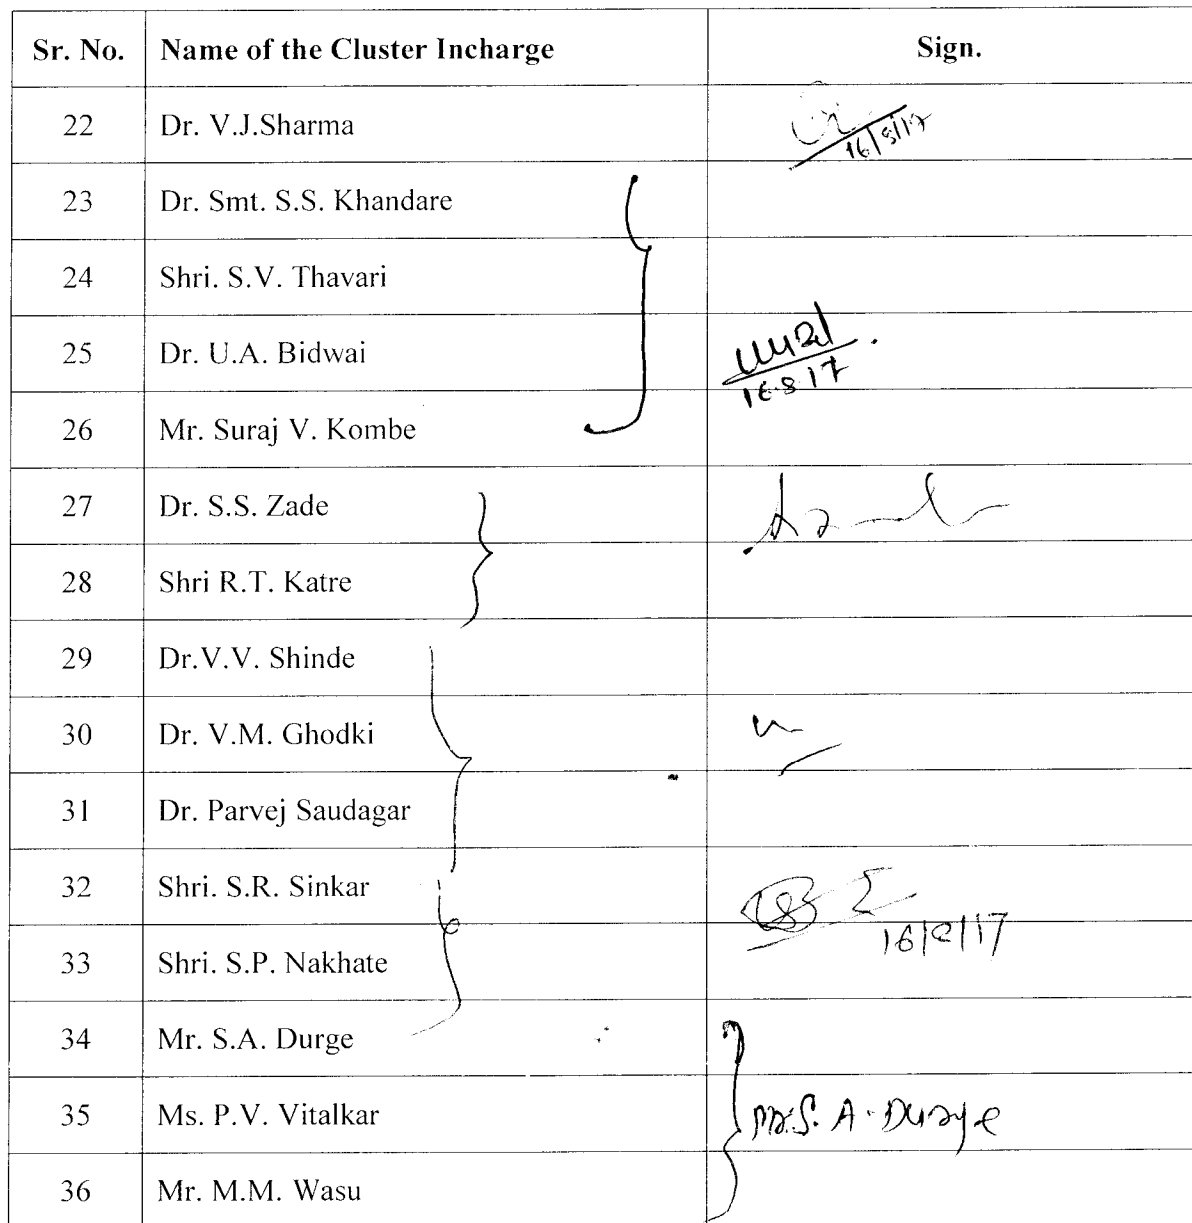 Sr. No. Name of the Cluster Incharge Sign.
22 Dr. V.J.Sharma
16/8/17
23 Dr. Smt. S.S. Khandare
24 Shri. S.V. Thavari
25 Dr. U.A. Bidwai
16.8.17
26 Mr. Suraj V. Kombe
27 Dr. S.S. Zade
28 Shri R.T. Katre
29 Dr.V.V. Shinde
30 Dr. V.M. Ghodki
31 Dr. Parvej Saudagar
32 Shri. S.R. Sinkar
16/8/17
33 Shri. S.P. Nakhate
34 Mr. S.A. Durge
35 Ms. P.V. Vitalkar Mr.S.A.Durge
36 Mr. M.M. Wasu